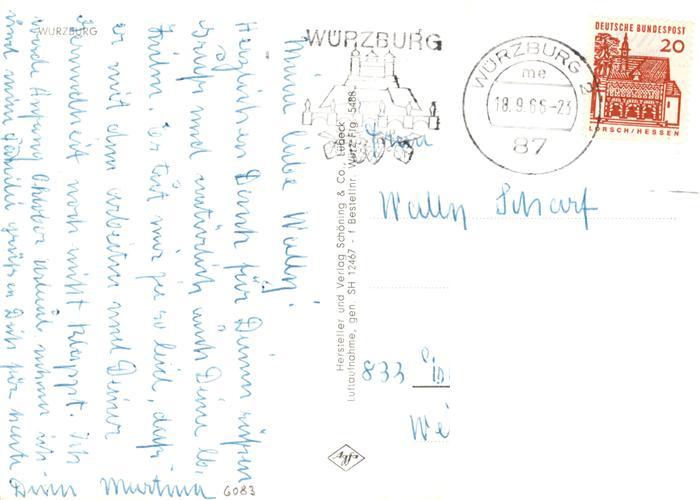 WÜRZBURG
Meine liebe Wally!
Herzlichen Dank für Deinen süßen
Gruß und natürlich auch Deine lb.
Zeilen. Es tut mir ja so leid, daß
er mit dem arbeiten und Deiner
noch nicht klappt. Ich
werde Anfang Oktober Urlaub nehmen
und meine Familie grüßen Dich für heute
Deine Martina
6083
Hersteller und Verlag Schöning & Co., Lübeck
Luftaufnahme, gen. SH 12467 - f Bestellnr. Würz Flg. 5488
WÜRZBURG
WÜRZBURG 2
me
18.9.66-23
87
DEUTSCHE BUNDESPOST
20
LORSCH/HESSEN
Wally Scharf
833
We